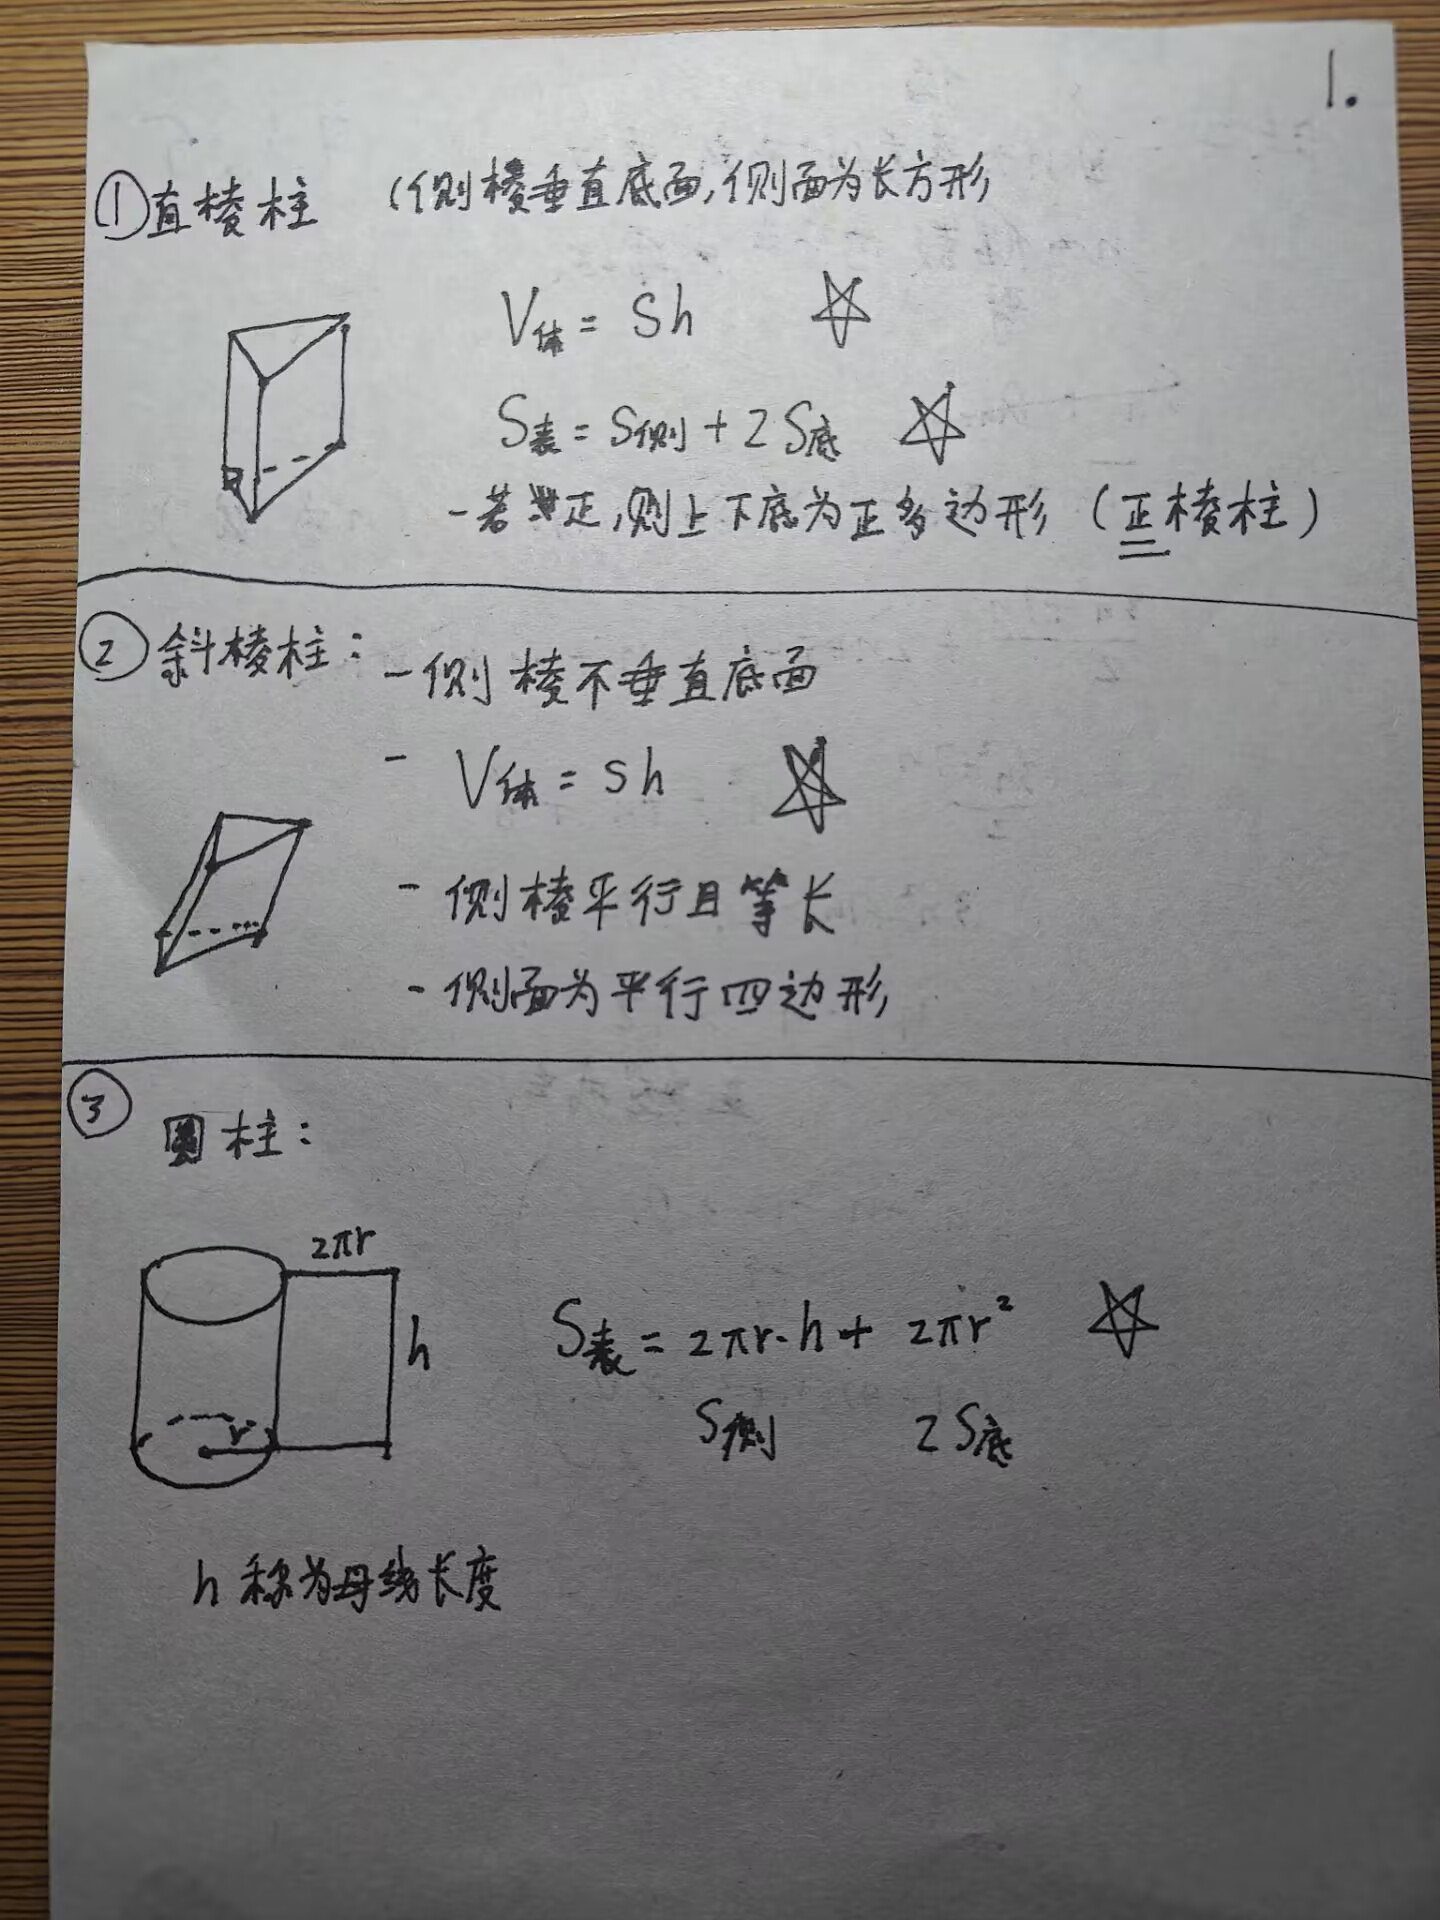 1.
①直棱柱 (侧棱垂直底面,侧面为长方形
V体 = Sh ☆
S表 = S侧 + 2S底 ☆
-若正,则上下底为正多边形 (正棱柱)
②斜棱柱: -侧棱不垂直底面
- V体 = sh ☆
- 侧棱平行且等长
- 侧面为平行四边形
③
圆柱:
2πr
h
r
S表 = 2πr·h + 2πr² ☆
S侧 2S底
h 称为母线长度